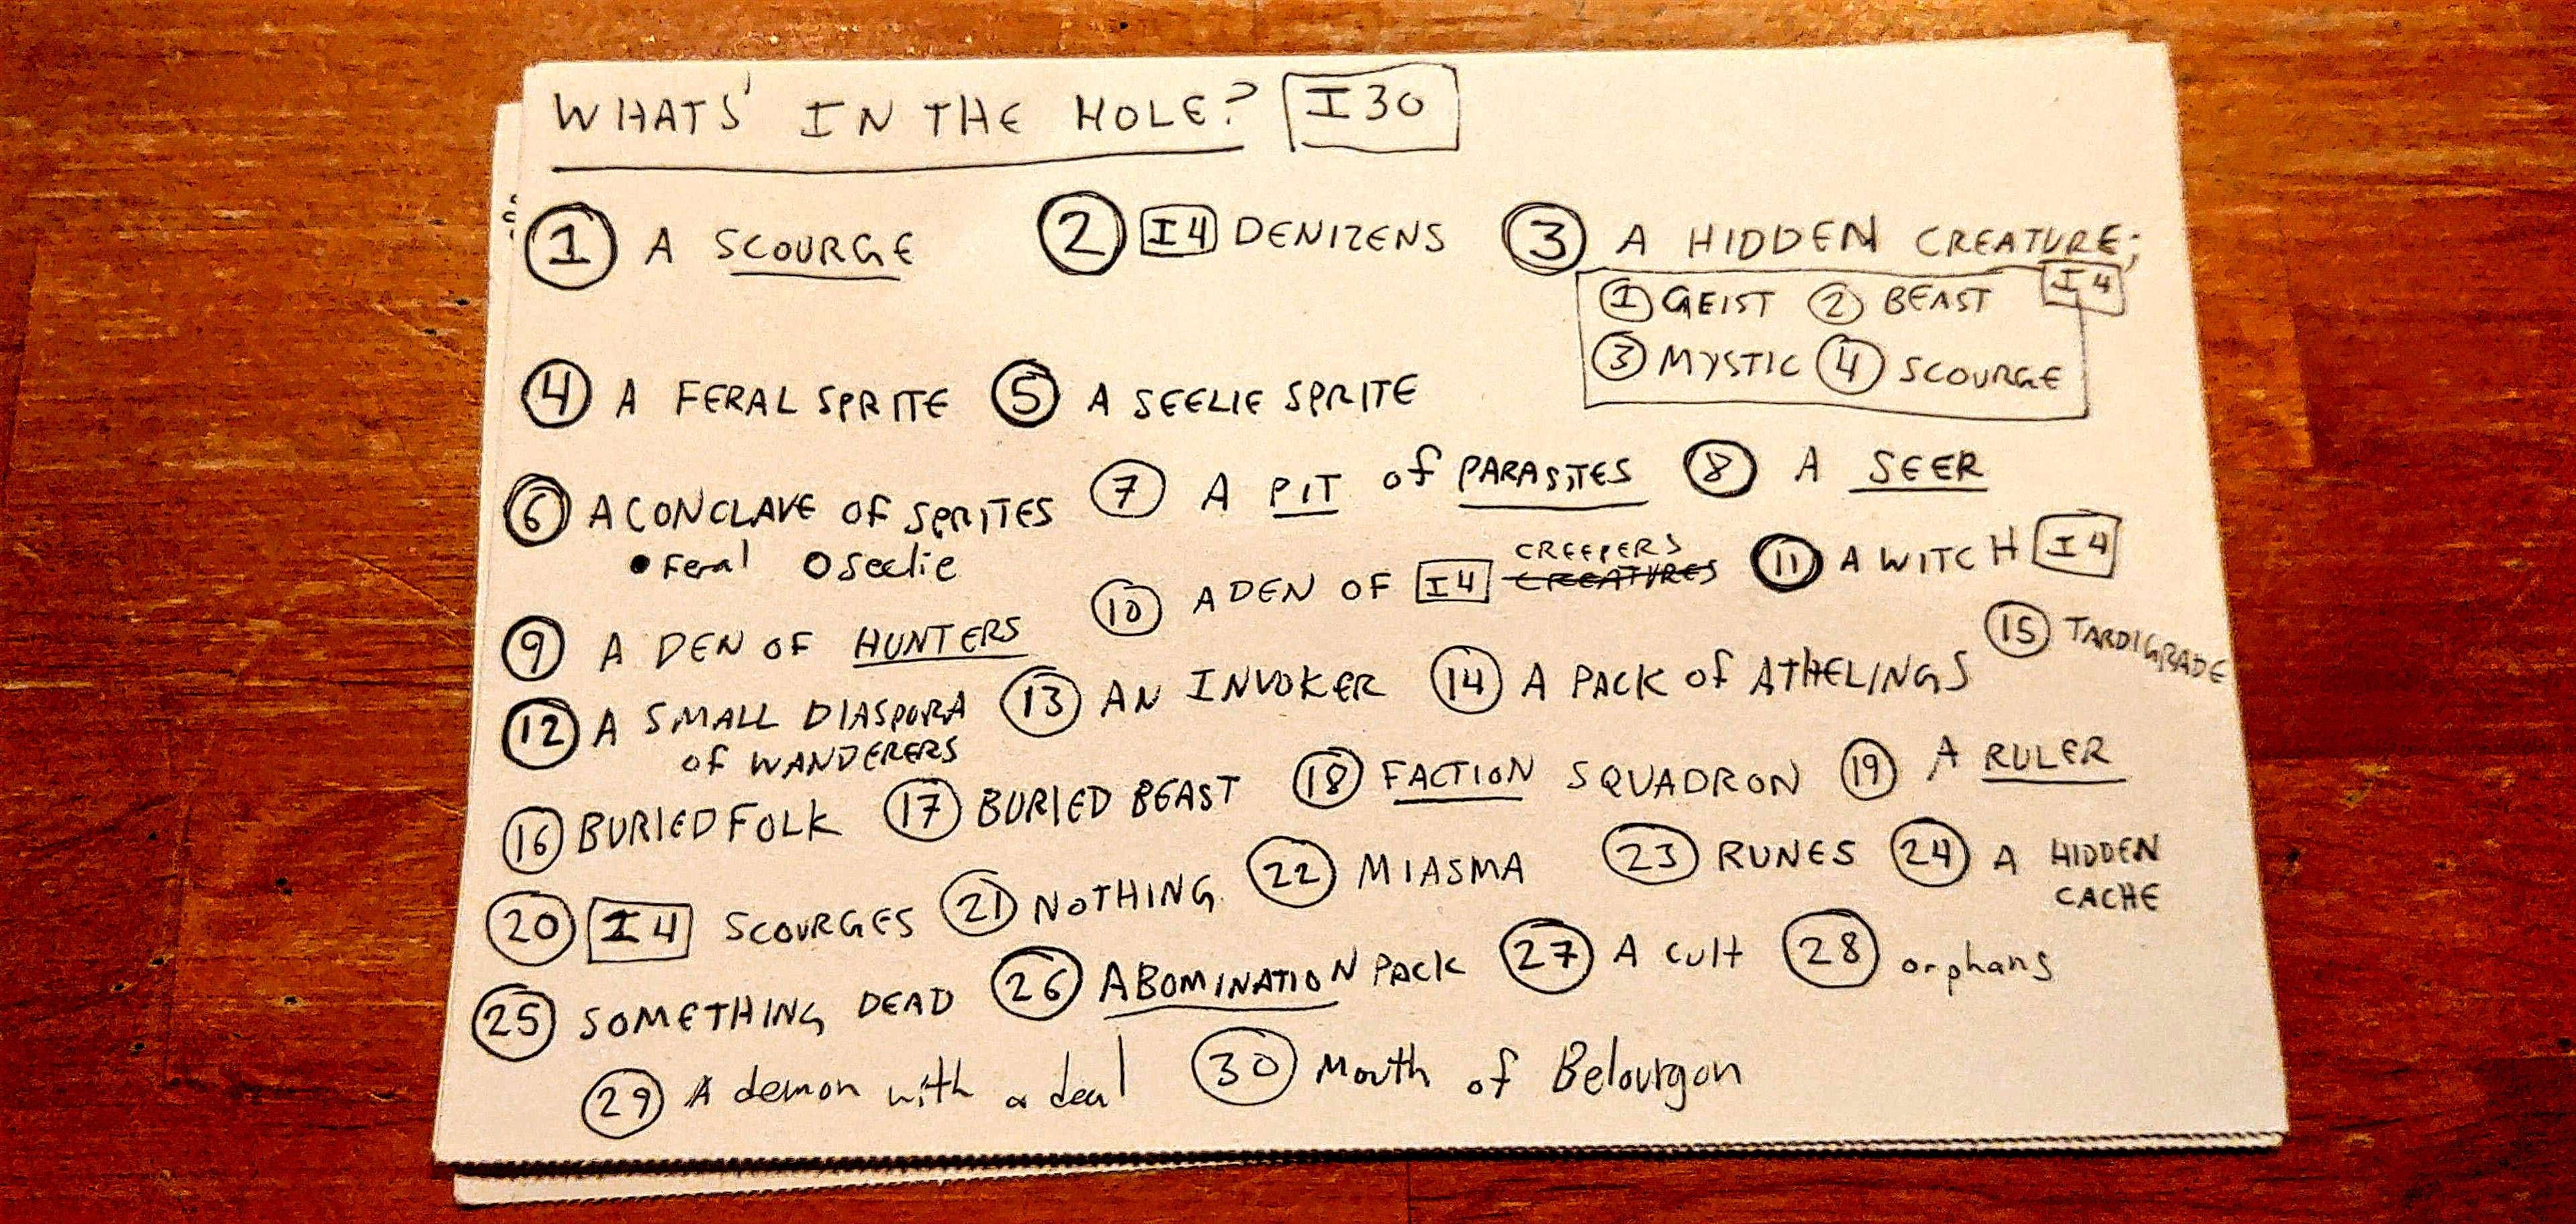 WHATS' IN THE HOLE? I30
1 A SCOURGE 2 I4 DENIZENS 3 A HIDDEN CREATURE;
I4
1 GEIST 2 BEAST
3 MYSTIC 4 SCOURGE
4 A FERAL SPRITE 5 A SEELIE SPRITE
6 A CONCLAVE OF SPRITES 7 A PIT of PARASITES 8 A SEER
• Feral O Seelie
9 A DEN OF HUNTERS 10 A DEN OF I4 CREEPERS 11 A WITCH I4
CREATURES
12 A SMALL DIASPORA 13 AN INVOKER 14 A PACK of ATHELINGS 15 TARDIGRADE
of WANDERERS
16 BURIED FOLK 17 BURIED BEAST 18 FACTION SQUADRON 19 A RULER
20 I4 SCOURGES 21 NOTHING 22 MIASMA 23 RUNES 24 A HIDDEN
CACHE
25 SOMETHING DEAD 26 ABOMINATION PACK 27 A cult 28 orphans
29 A demon with a deal 30 Mouth of Belourgon